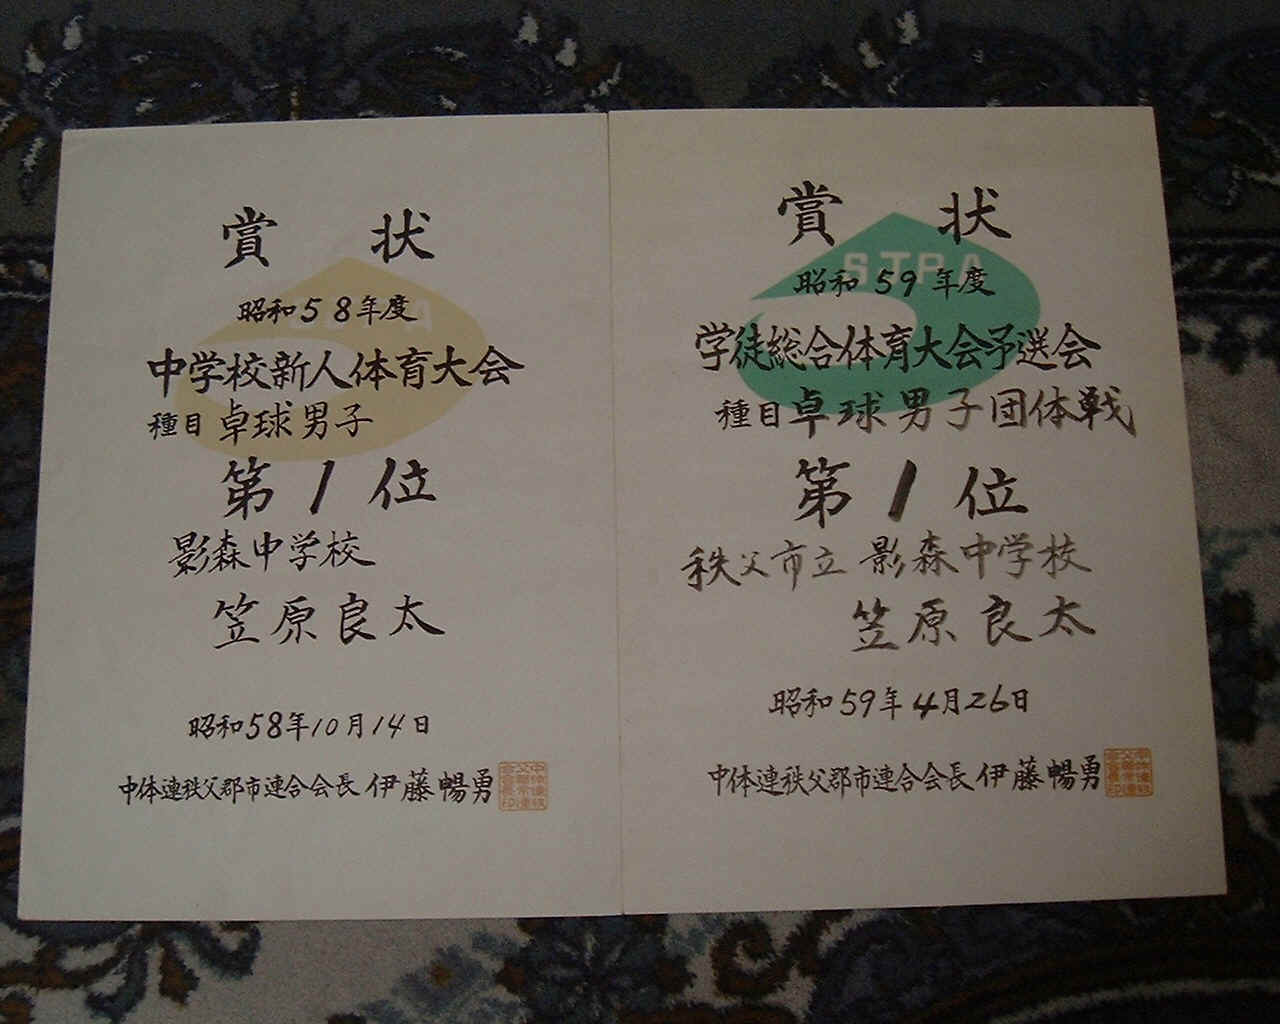 賞状
昭和58年度
中学校新人体育大会
種目 卓球男子
第1位
影森中学校
笠原良太
昭和58年10月14日
中体連秩父郡市連合会長 伊藤暢勇
賞状
STPA
昭和59年度
学徒総合体育大会予選会
種目 卓球男子団体戦
第1位
秩父市立 影森中学校
笠原良太
昭和59年4月26日
中体連秩父郡市連合会長 伊藤暢勇